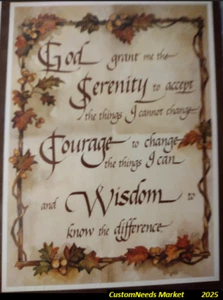 God grant me the
Serenity to accept
the things I cannot change
Courage to change
the things I can
and Wisdom to
know the difference
CustomNeeds Market 2025